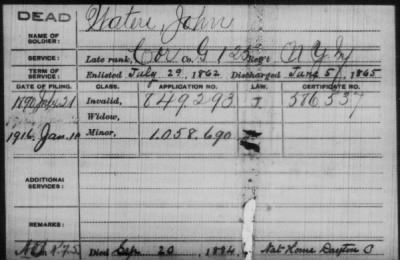 DEAD
NAME OF SOLDIER: Waters, John
SERVICE: Late rank, Cor Co. G 125 Reg't N.Y. Inf
TERM OF SERVICE: Enlisted July 29, 1862 Discharged June 5, 1865
DATE OF FILING. CLASS. APPLICATION NO. LAW. CERTIFICATE NO.
1890 July 21 Invalid, 849.293 586537
Widow,
1916 Jan. Minor, 1.058.690
ADDITIONAL SERVICES:
REMARKS:
Died 20, Nat Home Dayton O